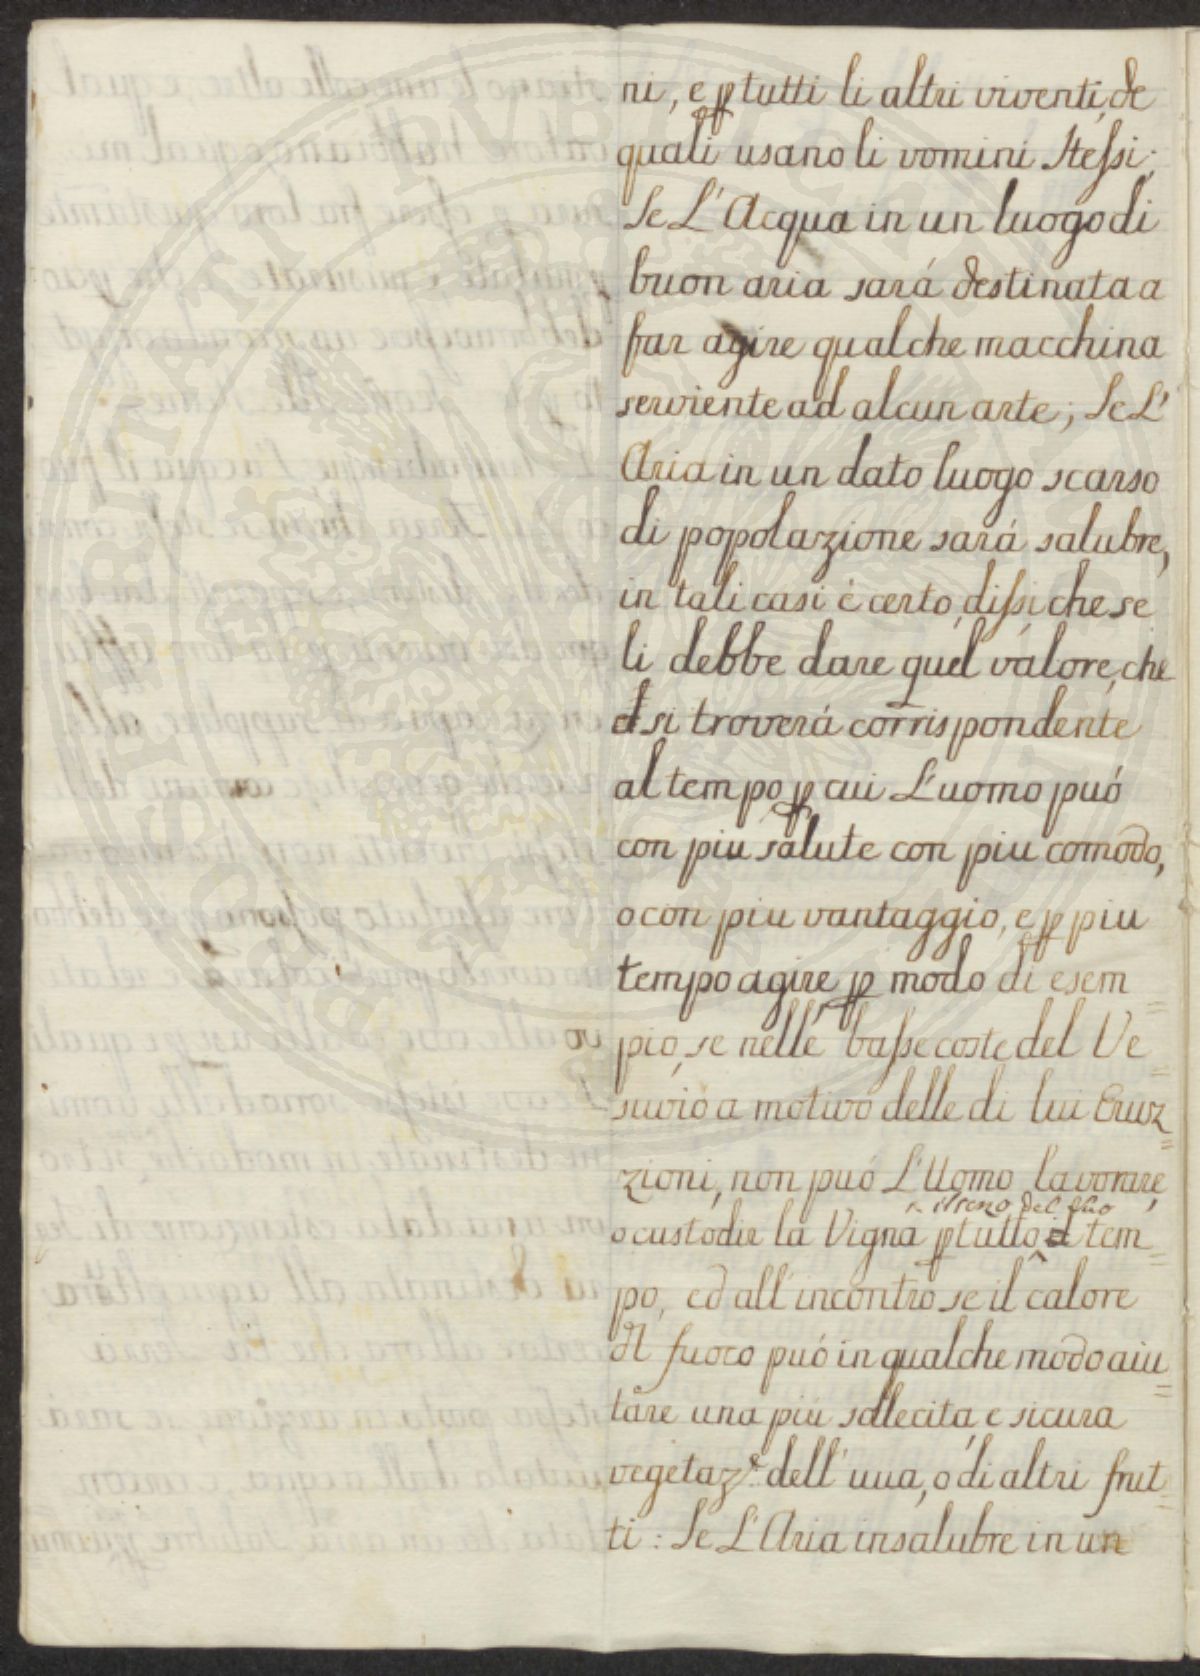 ni, e p tutti li altri viventi, de
quali usano li vomini stessi;
Se L'Acqua in un luogo di
buon aria sará destinata a
far agire qualche macchina
serviente ad alcun arte; Se L'
Aria in un dato luogo scarso
di popolazione sará salubre,
in tali casi è certo, dissi, che se
li debbe dare quel valore, che
si troverá corrispondente
al tempo p cui L'uomo puó
con piu salute con piu comodo,
o con piu vantaggio, e p piu
tempo agire p modo di esem=
pio, se nelle basse coste del Ve=
suvio a motivo delle di lui Eruz=
zioni, non puó L'Uomo lavorare,
il seno del suo
o custodir la Vigna p tutto il tem=
po, ed all'incontro se il calore
dl fuoco puó in qualche modo aiu=
tare una piú sollecita, e sicura
vegetaz.e dell'uua, o di altri frut=
ti: Se L'Aria insalubre in un